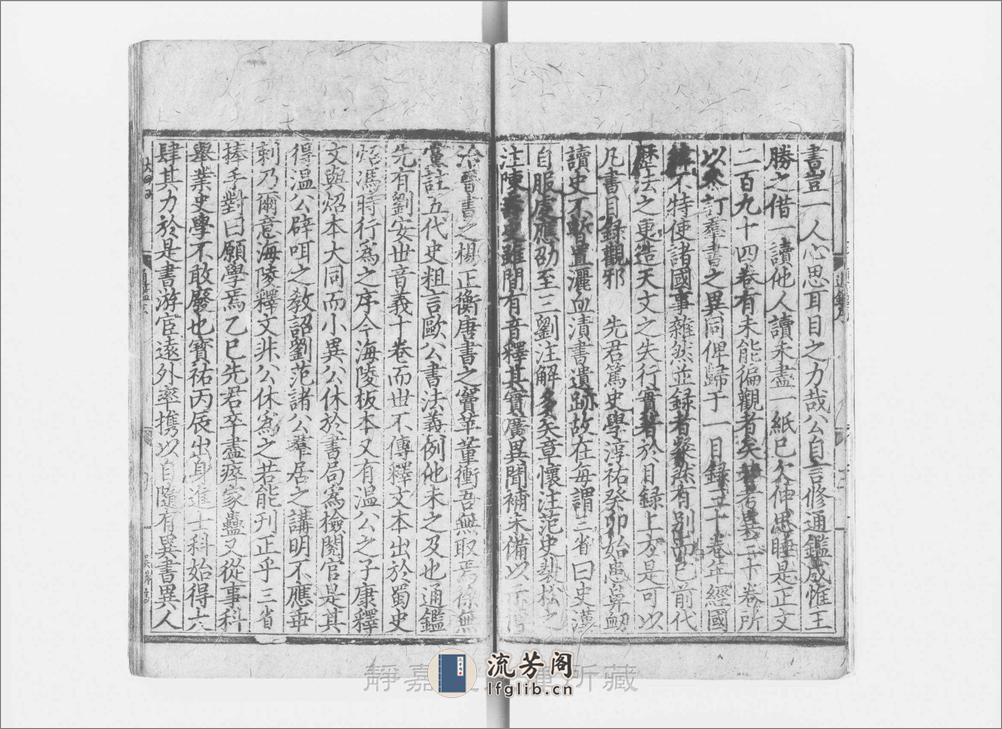 書豈一人心思耳目之力哉公自言修通鑑成惟王
勝之借一讀他人讀未盡一紙已欠伸思睡是正文
二百九十四卷有未能徧觀者矣若考異三十卷所
以參訂羣書之異同俾歸于一目録三十卷年經國
緯不特使諸國事雜然並録者粲然有別而已前代
歷法之更造天文之失行實著於目録上方是可以
凡書目録觀邪　先君篤史學淳祐癸卯始患鼻衄
讀史不暫置灑血漬書遺跡故在每謂三省曰史漢
自服虔應劭至三劉注解多矣章懷注范史裴松之
注陳壽史雖間有音釋其實廣異聞補未備以示
洽晉書之楊正衡唐書之竇苹董衝吾無取焉徐無
黨註五代史粗言歐公書法義例他未之及也通鑑
先有劉安世音義十卷而世不傳釋文本出於蜀史
炤馮時行爲之序今海陵板本又有溫公之子康釋
文與炤本大同而小異公休於書局爲檢閱官是其
得溫公辟咡之教詔劉范諸公羣居之講明不應乖
剌乃爾意海陵釋文非公休爲之若能刊正乎三省
捧手對曰願學焉乙巳先君卒盡瘁家蠱又從事科
舉業史學不敢廢也寶祐丙辰出身進士科始得大
肆其力於是書游宦遠外率携以自隨有異書異人
靜嘉 所藏
流芳阁
lfglib.cn